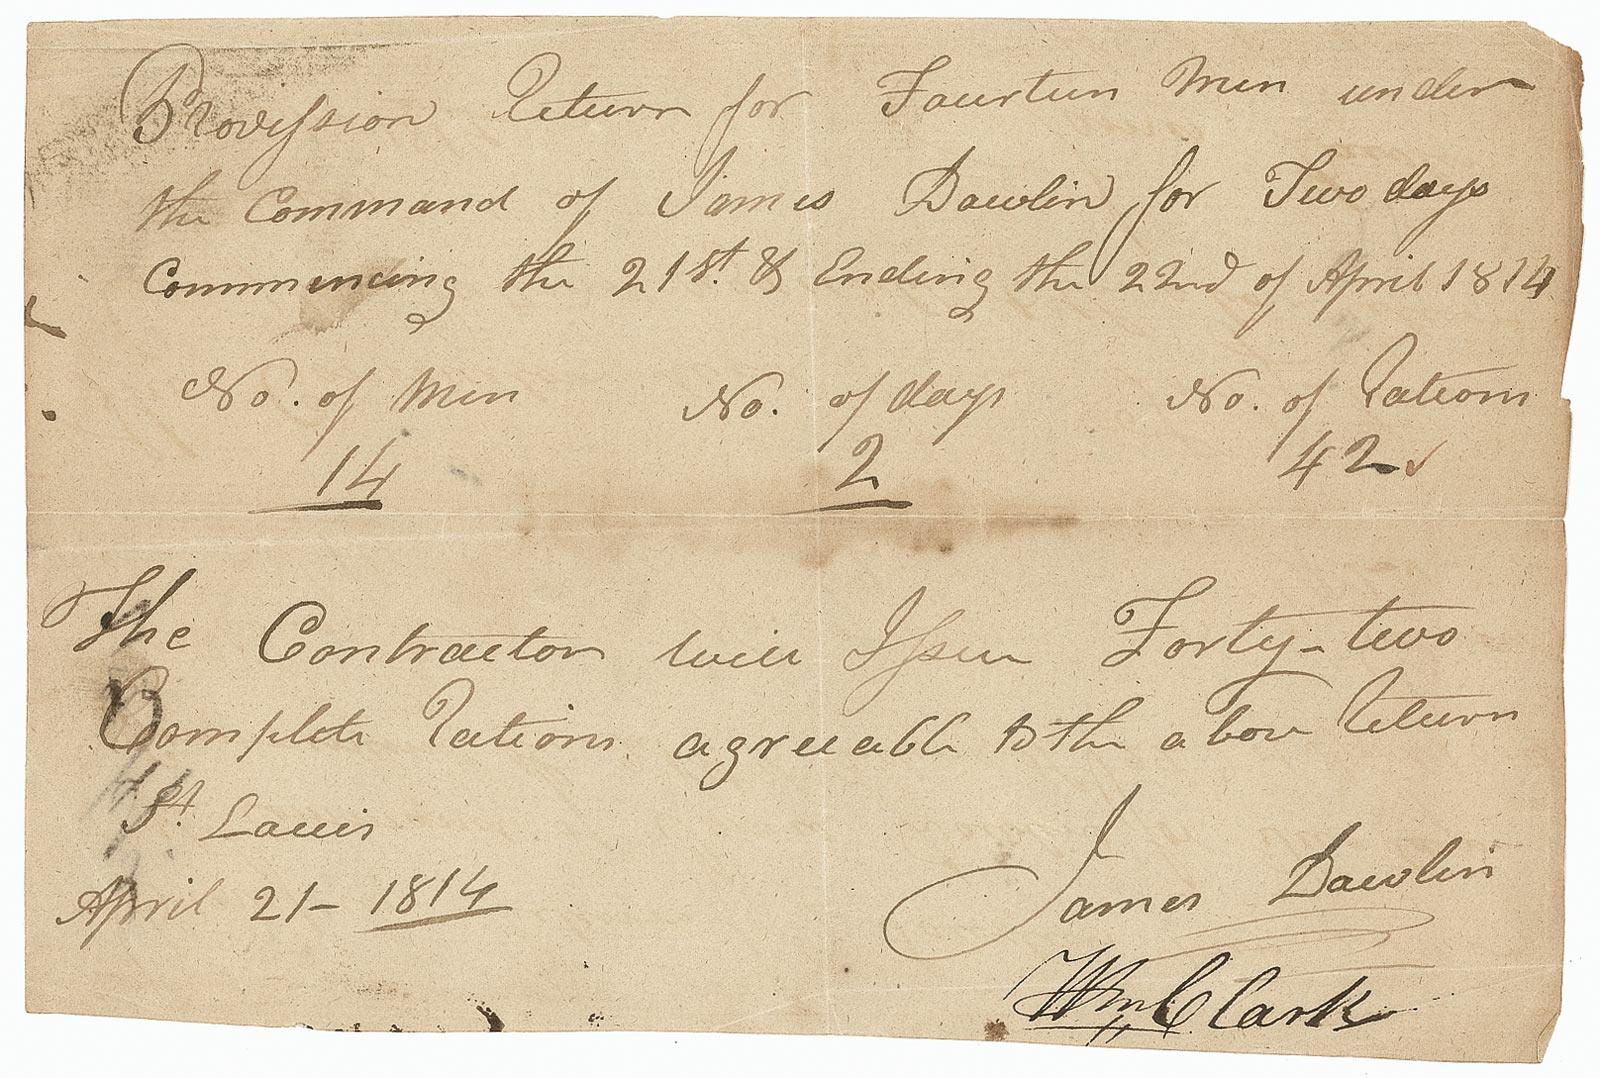 Provission Return for Fourteen Men under
the Command of James Dawlin for Two days
Commencing the 21st. & Ending the 22nd of April 1814
No. of Men No. of days No. of Rations
14 2 42
The Contractor will Issue Forty-two
Complete Rations agreeable to the above Return
St. Louis
April 21 - 1814
James Dawlin
Wm Clark